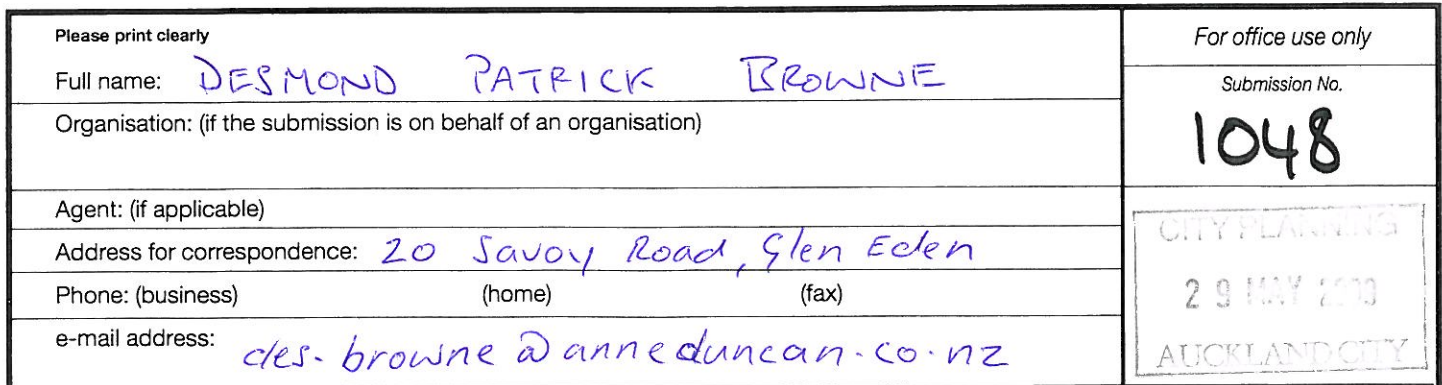 Please print clearly
Full name: DESMOND PATRICK BROWNE
Organisation: (if the submission is on behalf of an organisation)
Agent: (if applicable)
Address for correspondence: 20 Savoy Road, Glen Eden
Phone: (business) (home) (fax)
e-mail address: des.browne@anneduncan.co.nz
For office use only
Submission No.
1048
CITY PLANNING
29 MAY
AUCKLAND CITY